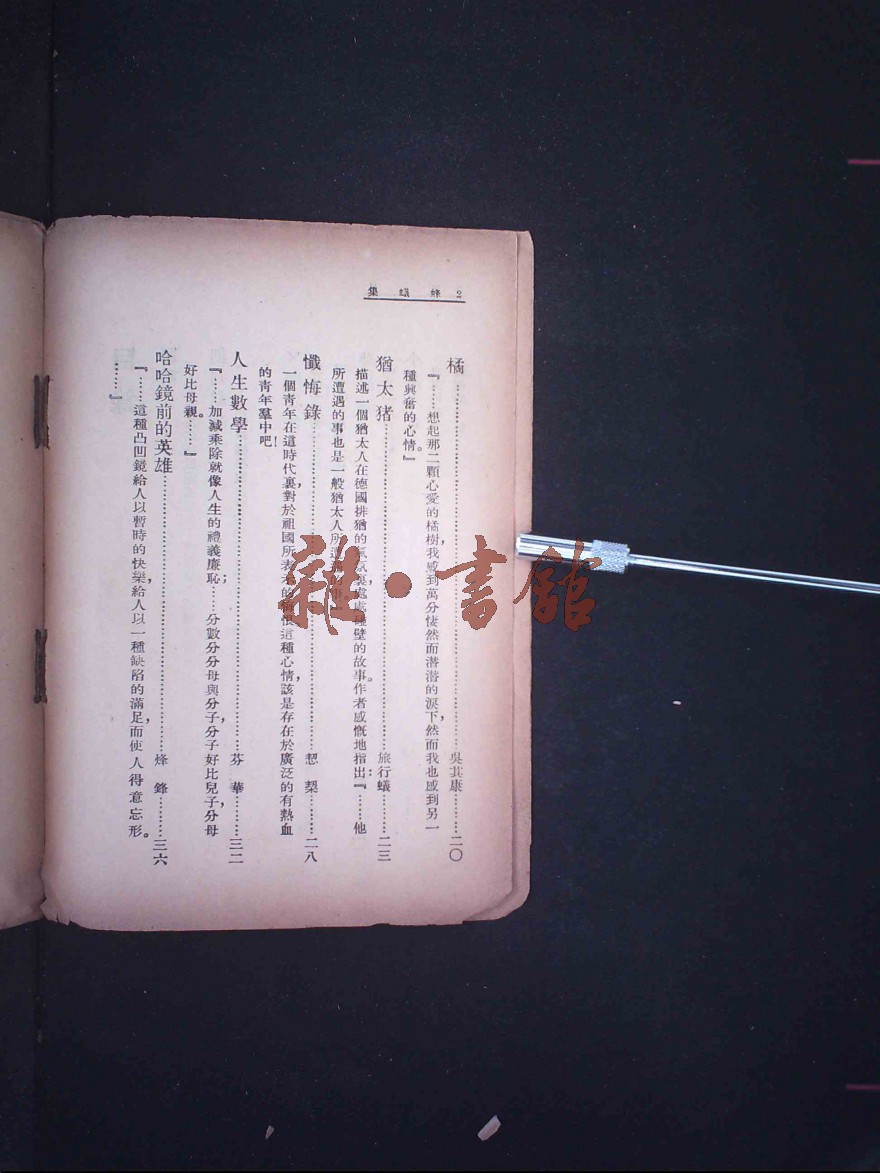 集蟻蜂 2
橘……吳其康……二〇
『……想起那二顆心愛的橘樹，我感到萬分悽然而潸潸的淚下，然而我也感到另一
種興奮的心情。』
猶太猪……旅行蟻……二三
描述一個猶太人在德國排猶的氣氛裏處處碰壁的故事。作者感慨地指出：『……他
所遭遇的事也是一般猶太人所遭遇的事。』
懺悔錄……恝䊵……二八
一個青年在這時代裏對於祖國所表示的悔恨，這種心情，該是存在於廣泛的有熱血
的青年羣中吧！
人生數學……芬華……三二
『……加減乘除就像人生的禮義廉恥；……分數分分母與分子，分子好比兒子，分母
好比母親。……』
哈哈鏡前的英雄……烽鋒……三六
『……這種凸凹鏡給人以暫時的快樂，給人以一種缺陷的滿足，而使人得意忘形。
……』
雜·書館